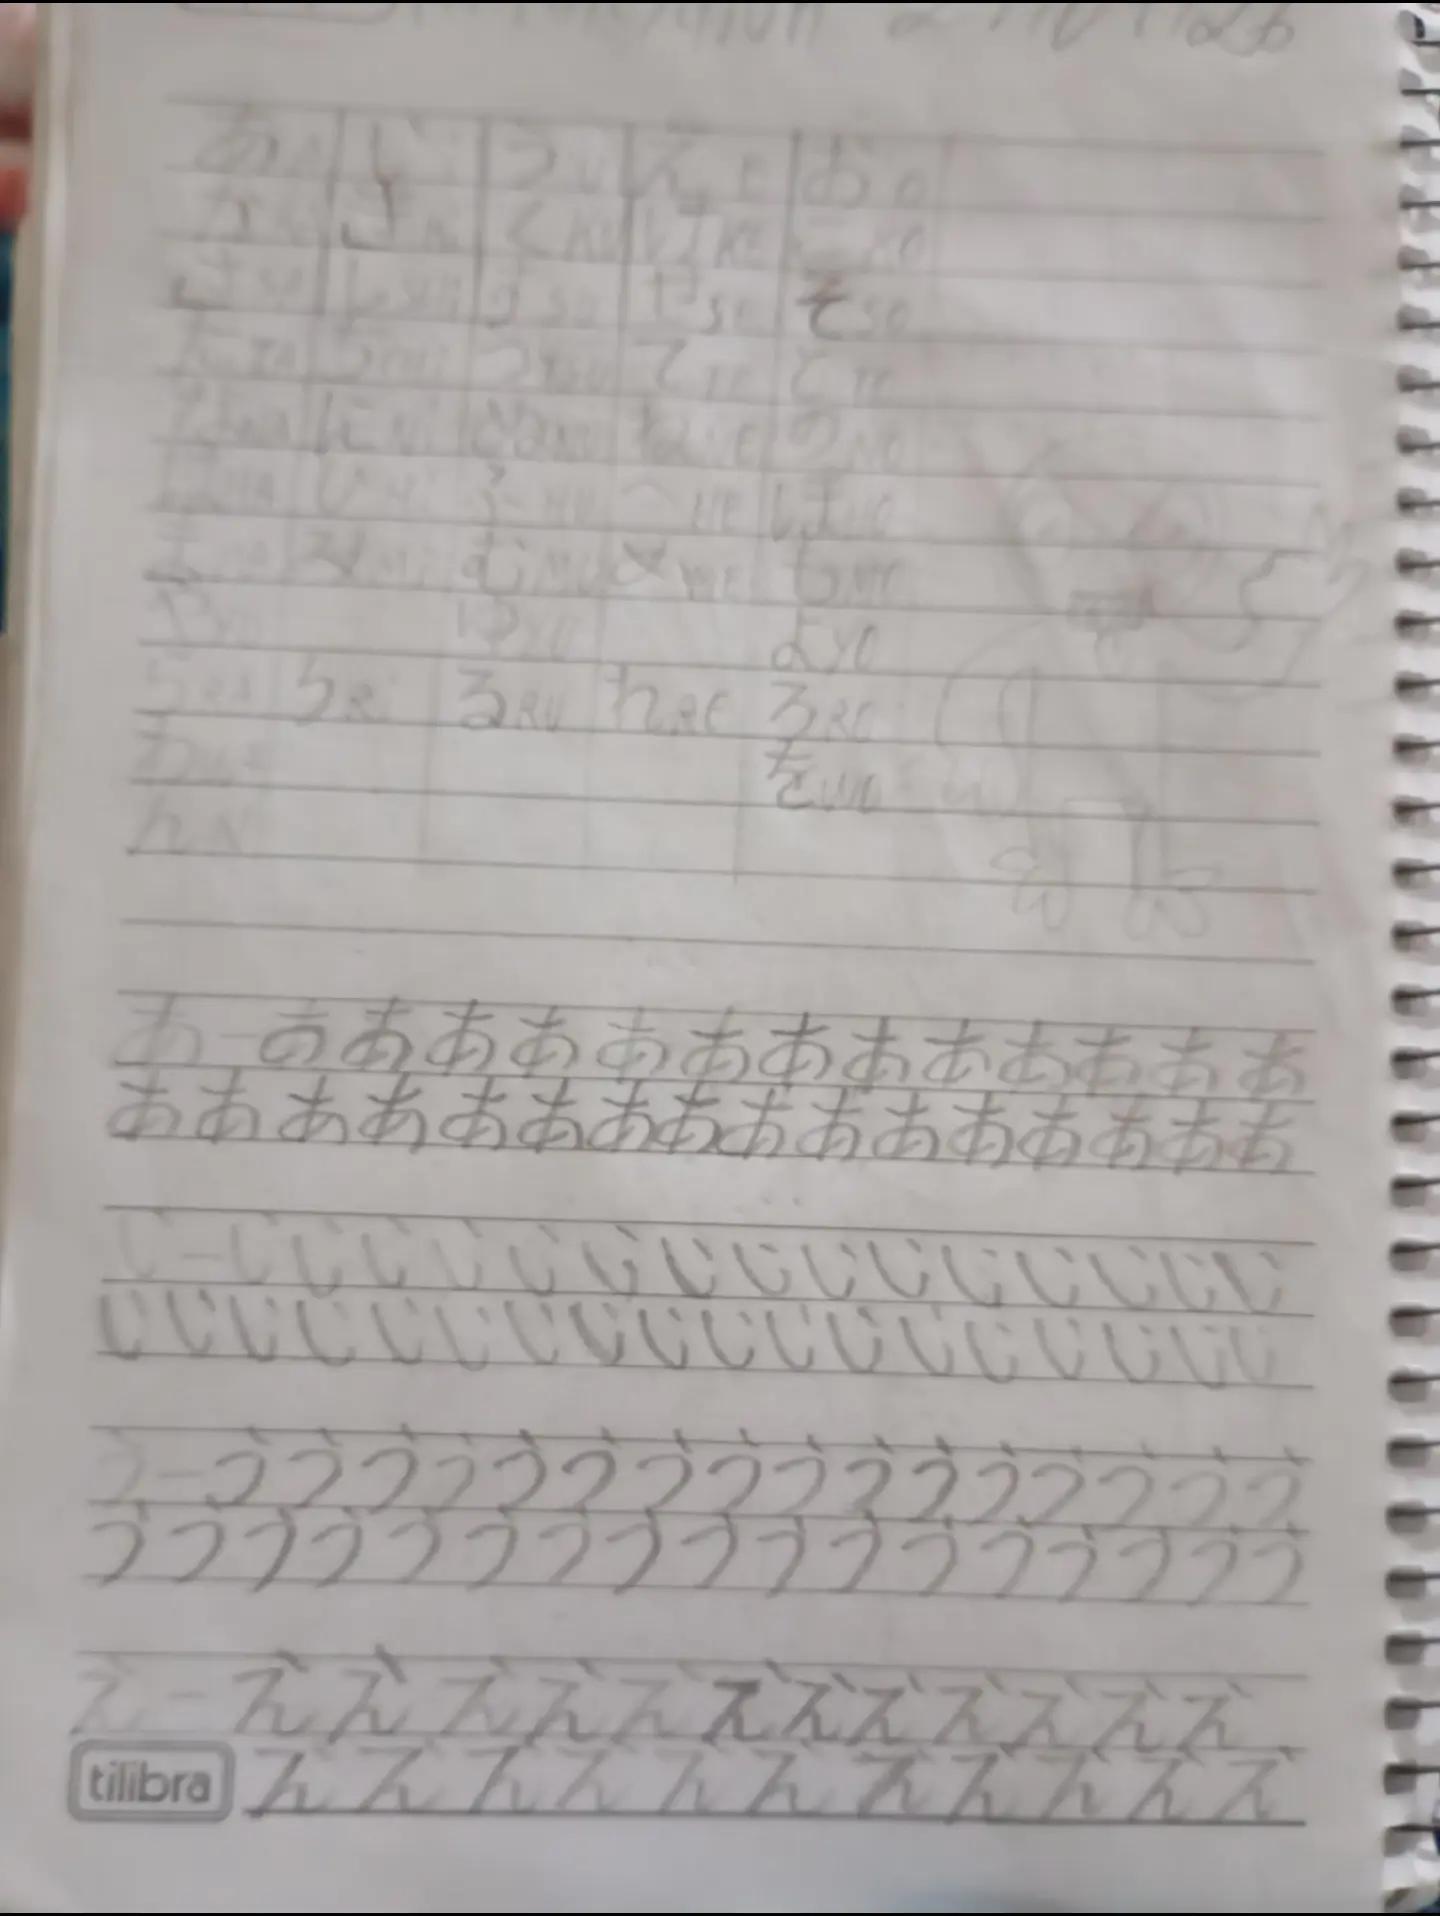 あA い うU えE おO
かKA きKi くKU けKE こKO
さSA しSHi すSU せSE そSO
たTA ちCHi つTSU てTE と
なNA にNi ぬNU ねNE のNO
はHA ひHi ふHU へHE ほHO
まMA みMi むMU めME もMO
やYA ゆYU よYO
らRA RI るRU れRE ろRO
わWA をWO
んN
あ-あああああああああああああ
ああああああああああああああああ
い-いいいいいいいいいいいいいいい
いいいいいいいいいいいいいいいいいい
う-ううううううううううううううう
ううううううううううううううううう
え-ええええええええええええ
tilibra えええええええええええ